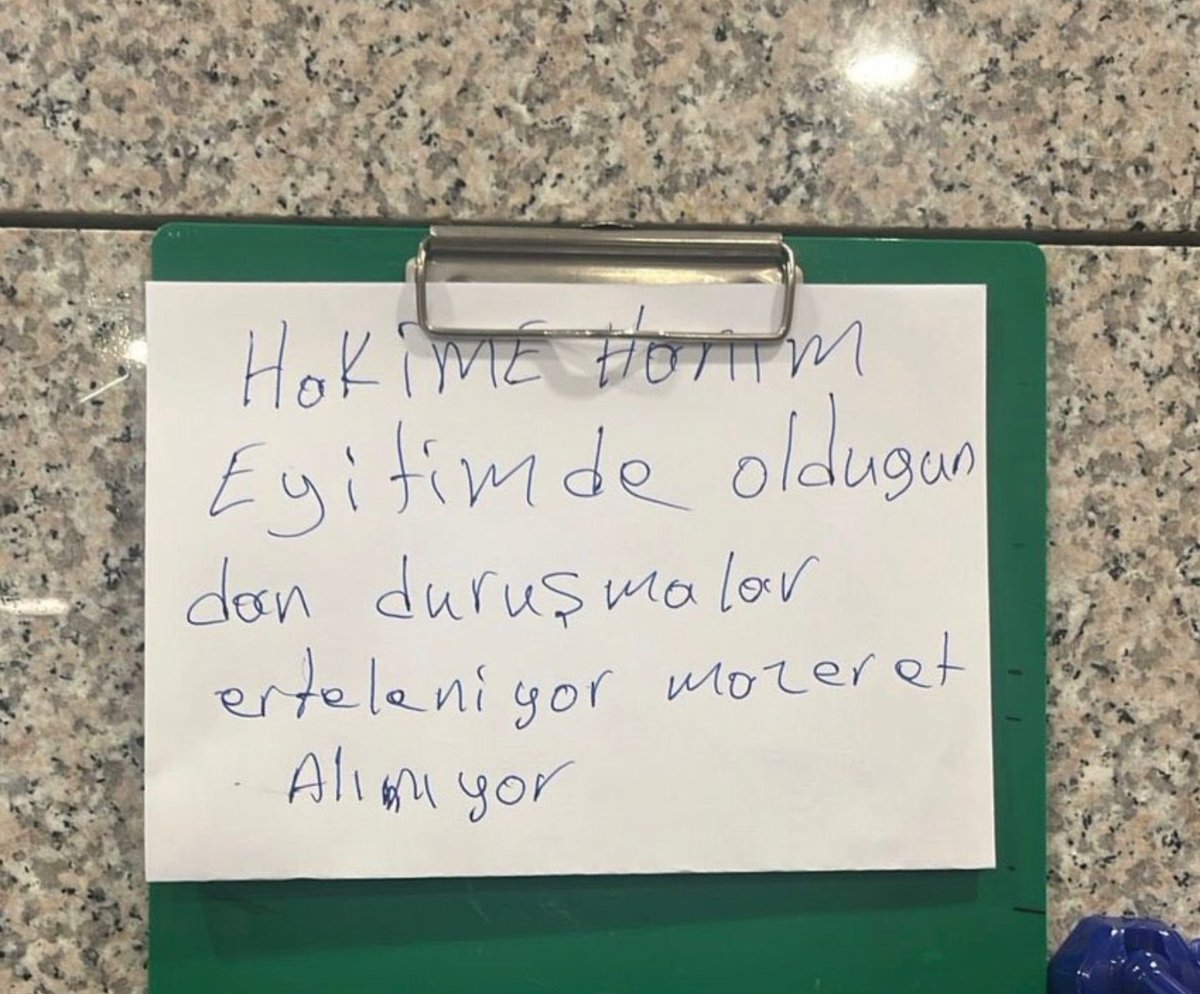 HaKiME HaNıM
Eyitimde oldugun
dan duruşmalar
erteleniyor mazeret
Alınıyor